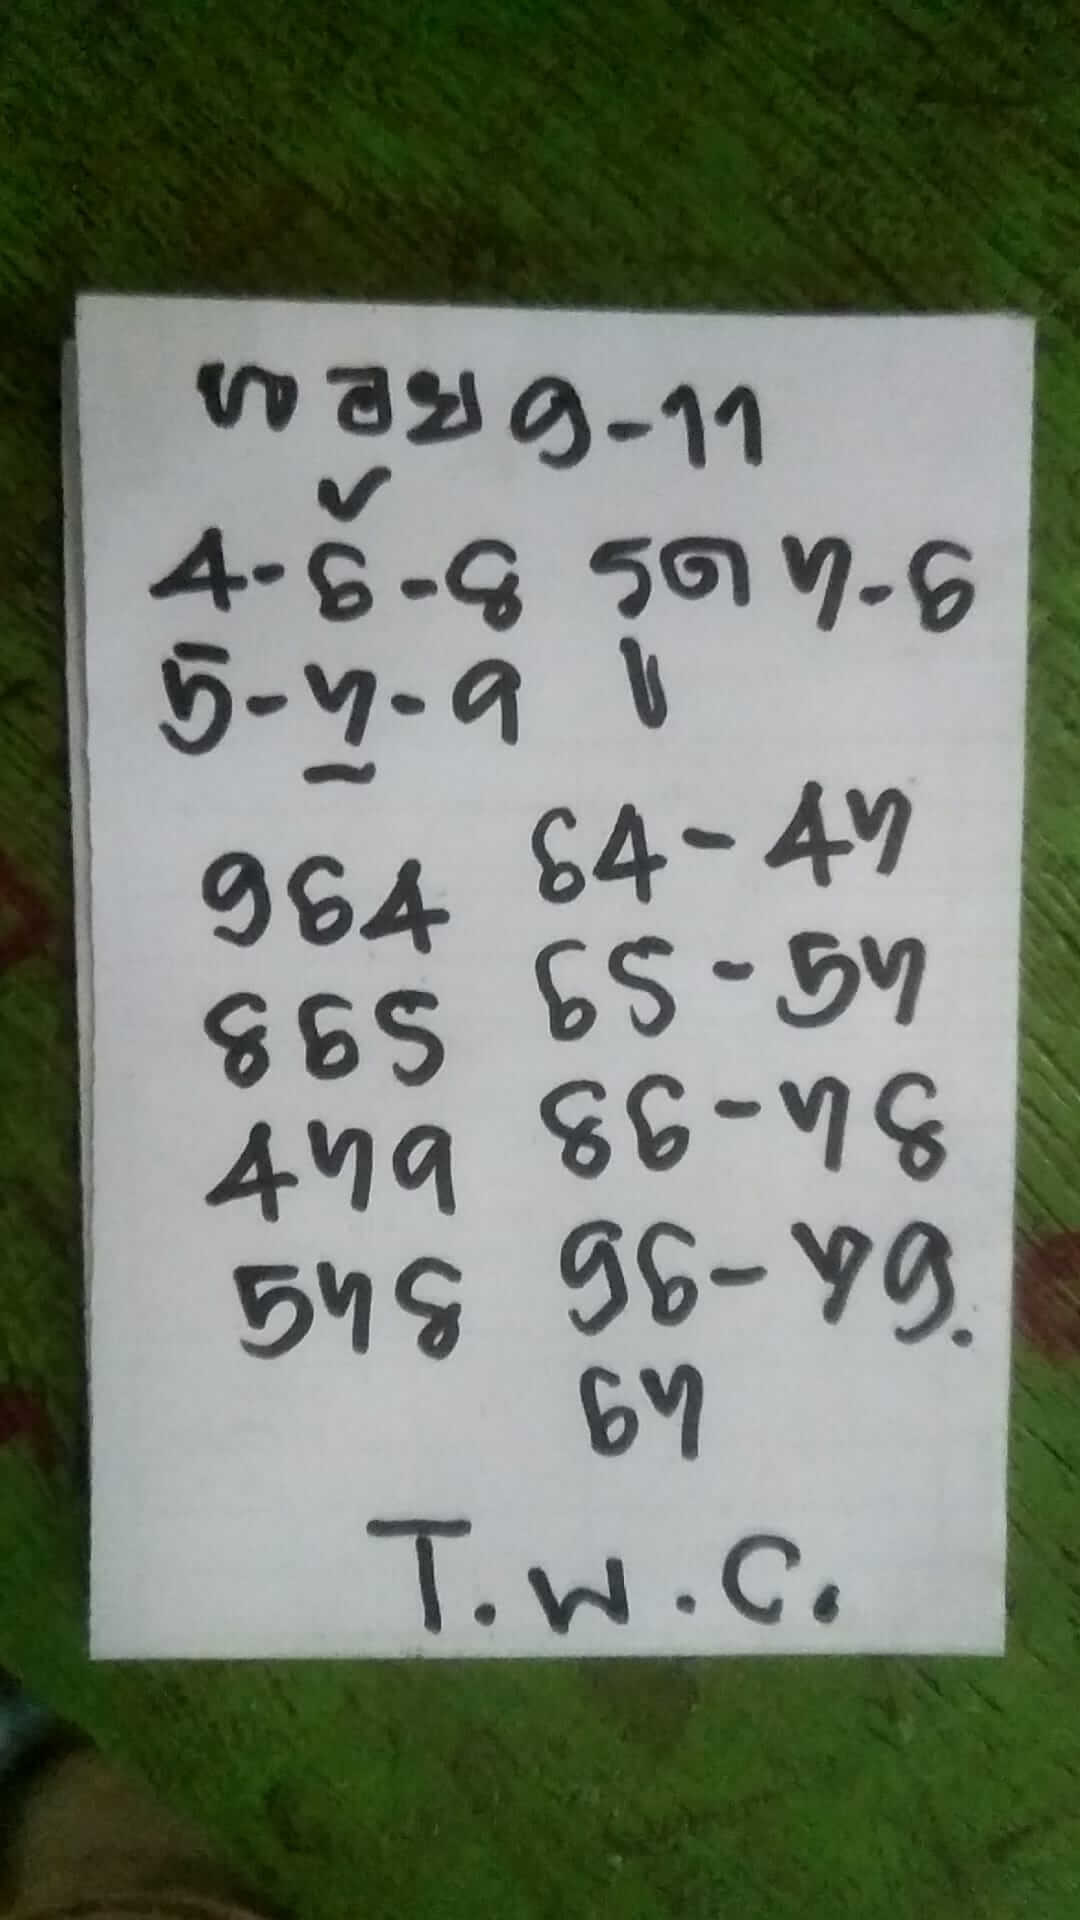 9-11
4-6-8 รูด 7-6
5-7-9
964 64-47
865 65-57
479 86-78
578 96-79.
67
T.W.C.